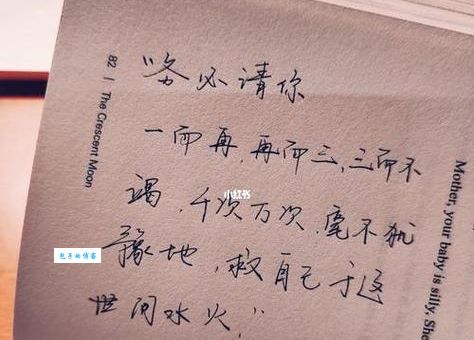 82 | The Crescent Moon
务必请你
一而再,再而三,三而不
竭,千次万次,毫不犹
豫地,救自己于这
世间水火!
Mother, your baby is silly. She
小红书
包子的博客